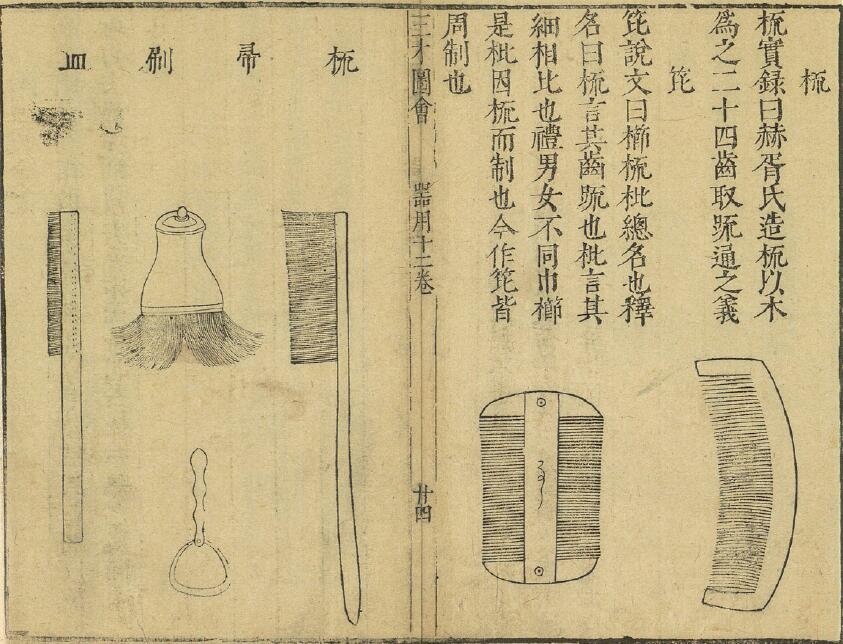 梳
梳實録曰赫胥氏造梳以木
爲之二十四齒取踈通之義
笓
笓說文曰櫛梳枇總名也釋
名曰梳言其齒踈也枇言其
細相比也禮男女不同巾櫛
是枇因梳而制也今作笓皆
周制也
三才圖會 器用十二卷 廿四
梳
帚
刷